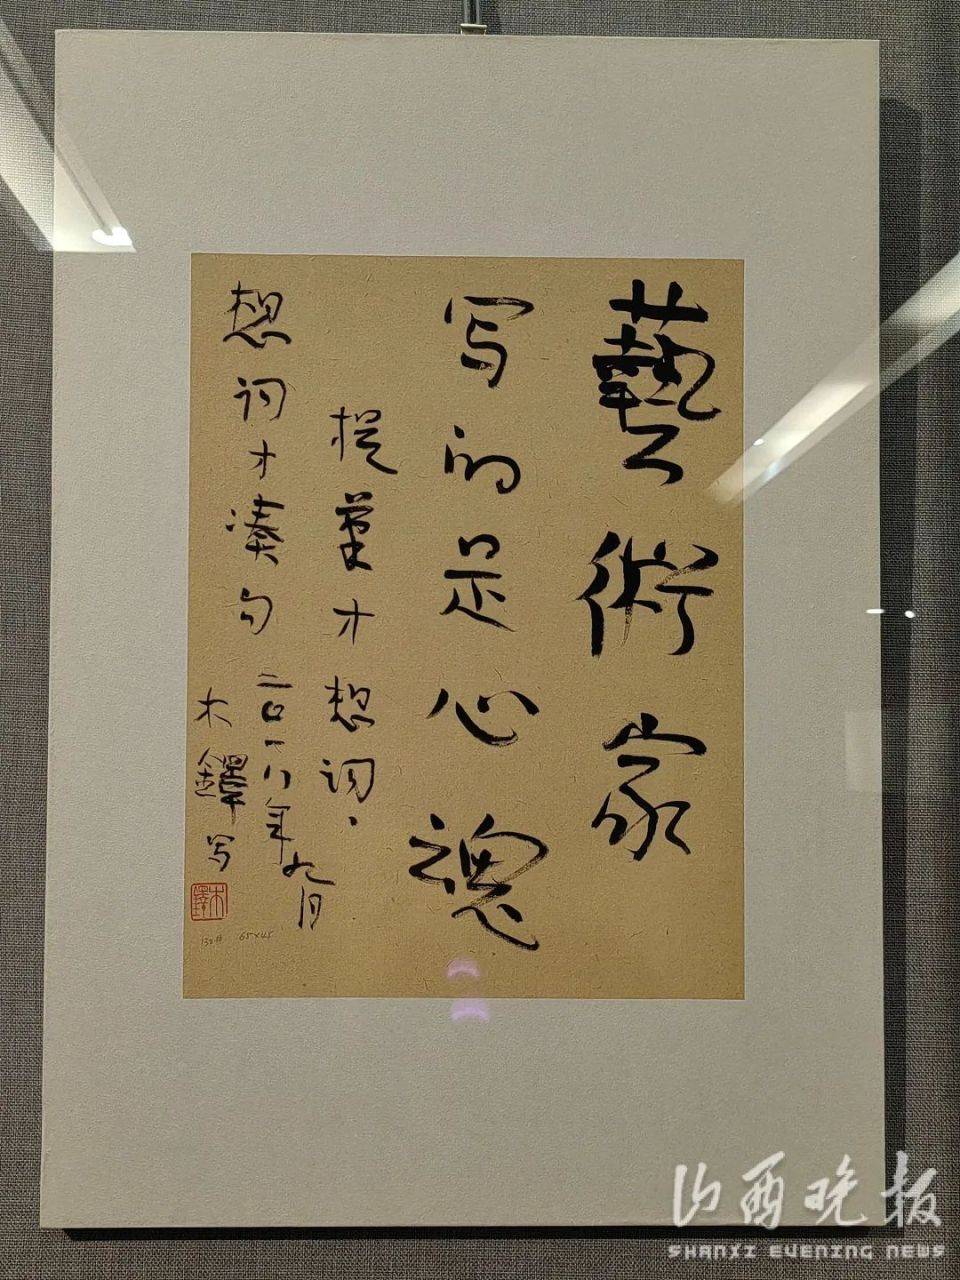 藝術家
写的是心魂
提董才想词、
想词才凑句
二〇一八年九月
木鐸写
木鐸
130# 65×45
山西晚报
SHANXI EVENING NEWS